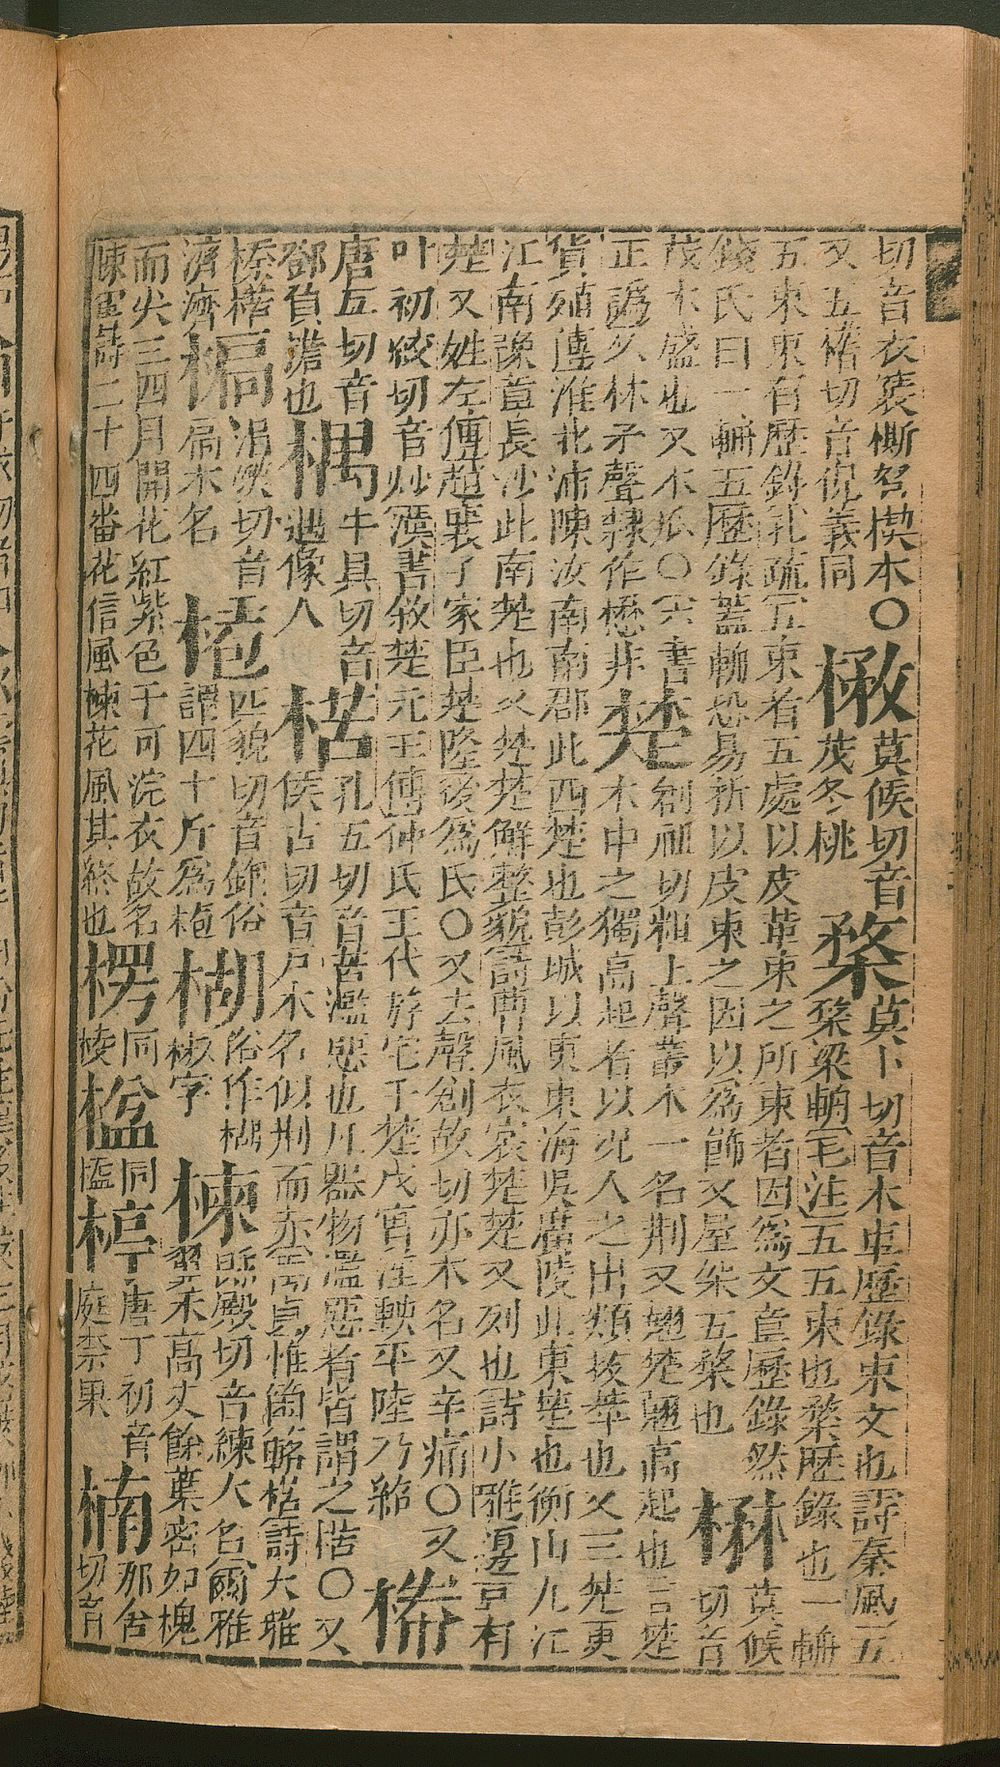 切音衣裘榹弩楔木○
又五稽切音倪義同
莫候切音
茂冬桃
楘
莫卜切音木車歷錄束文也詩秦風五
楘梁輈毛注五五束也楘歷錄也一輈
五束束有歷錄孔疏五五束者五處以皮革束之所束者因爲文章歷錄然
錢氏曰一輈五歷錄蓋輈恐易折以皮束之因以爲飾又屋柒五楘也
楙
莫候
切音
茂木盛也又木瓜○六書
正譌从林矛聲隸作懋非
楚
創祖切粗上聲叢木一名荆又翹楚翹高起也言楚
木中之獨高起者以況人之出類拔萃也又三楚更
貨殖傳淮北沛陳汝南南郡此西楚也彭城以東東海吳廣陵此東楚也衡山九江
江南豫章長沙此南楚也又楚楚解整貌詩曹風衣裳楚楚又列也詩小雅籩豆有
楚又姓左傳趙襄子家臣楚隆後爲氏○又去聲創故切亦木名又辛痛○又
叶初絞切音炒漢書敘楚元王傳仲氏王代斿宅于楚戊實淫軼平陸乃紹
唐互切音
鄧負擔也
牛具切音
遇像人
楛
孔五切音苦濫惡也凡器物濫惡者皆謂之楛○又
侯古切音戶木名似荆而赤禹貢惟箘簵楛詩大雅
榛楛
濟濟
涓熒切音
扃木名
匹貌切音
俗
謂四十斤爲
楜
俗作楜
椒字
楝
郎殿切音練木名爾雅
翼木高丈餘葉密如槐
而尖三四月開花紅紫色子可浣衣故名
陳軍詩二十四番花信風楝花風其終也
楞
同
棱
同
唐丁初音
庭柰果
楠
那含
切音